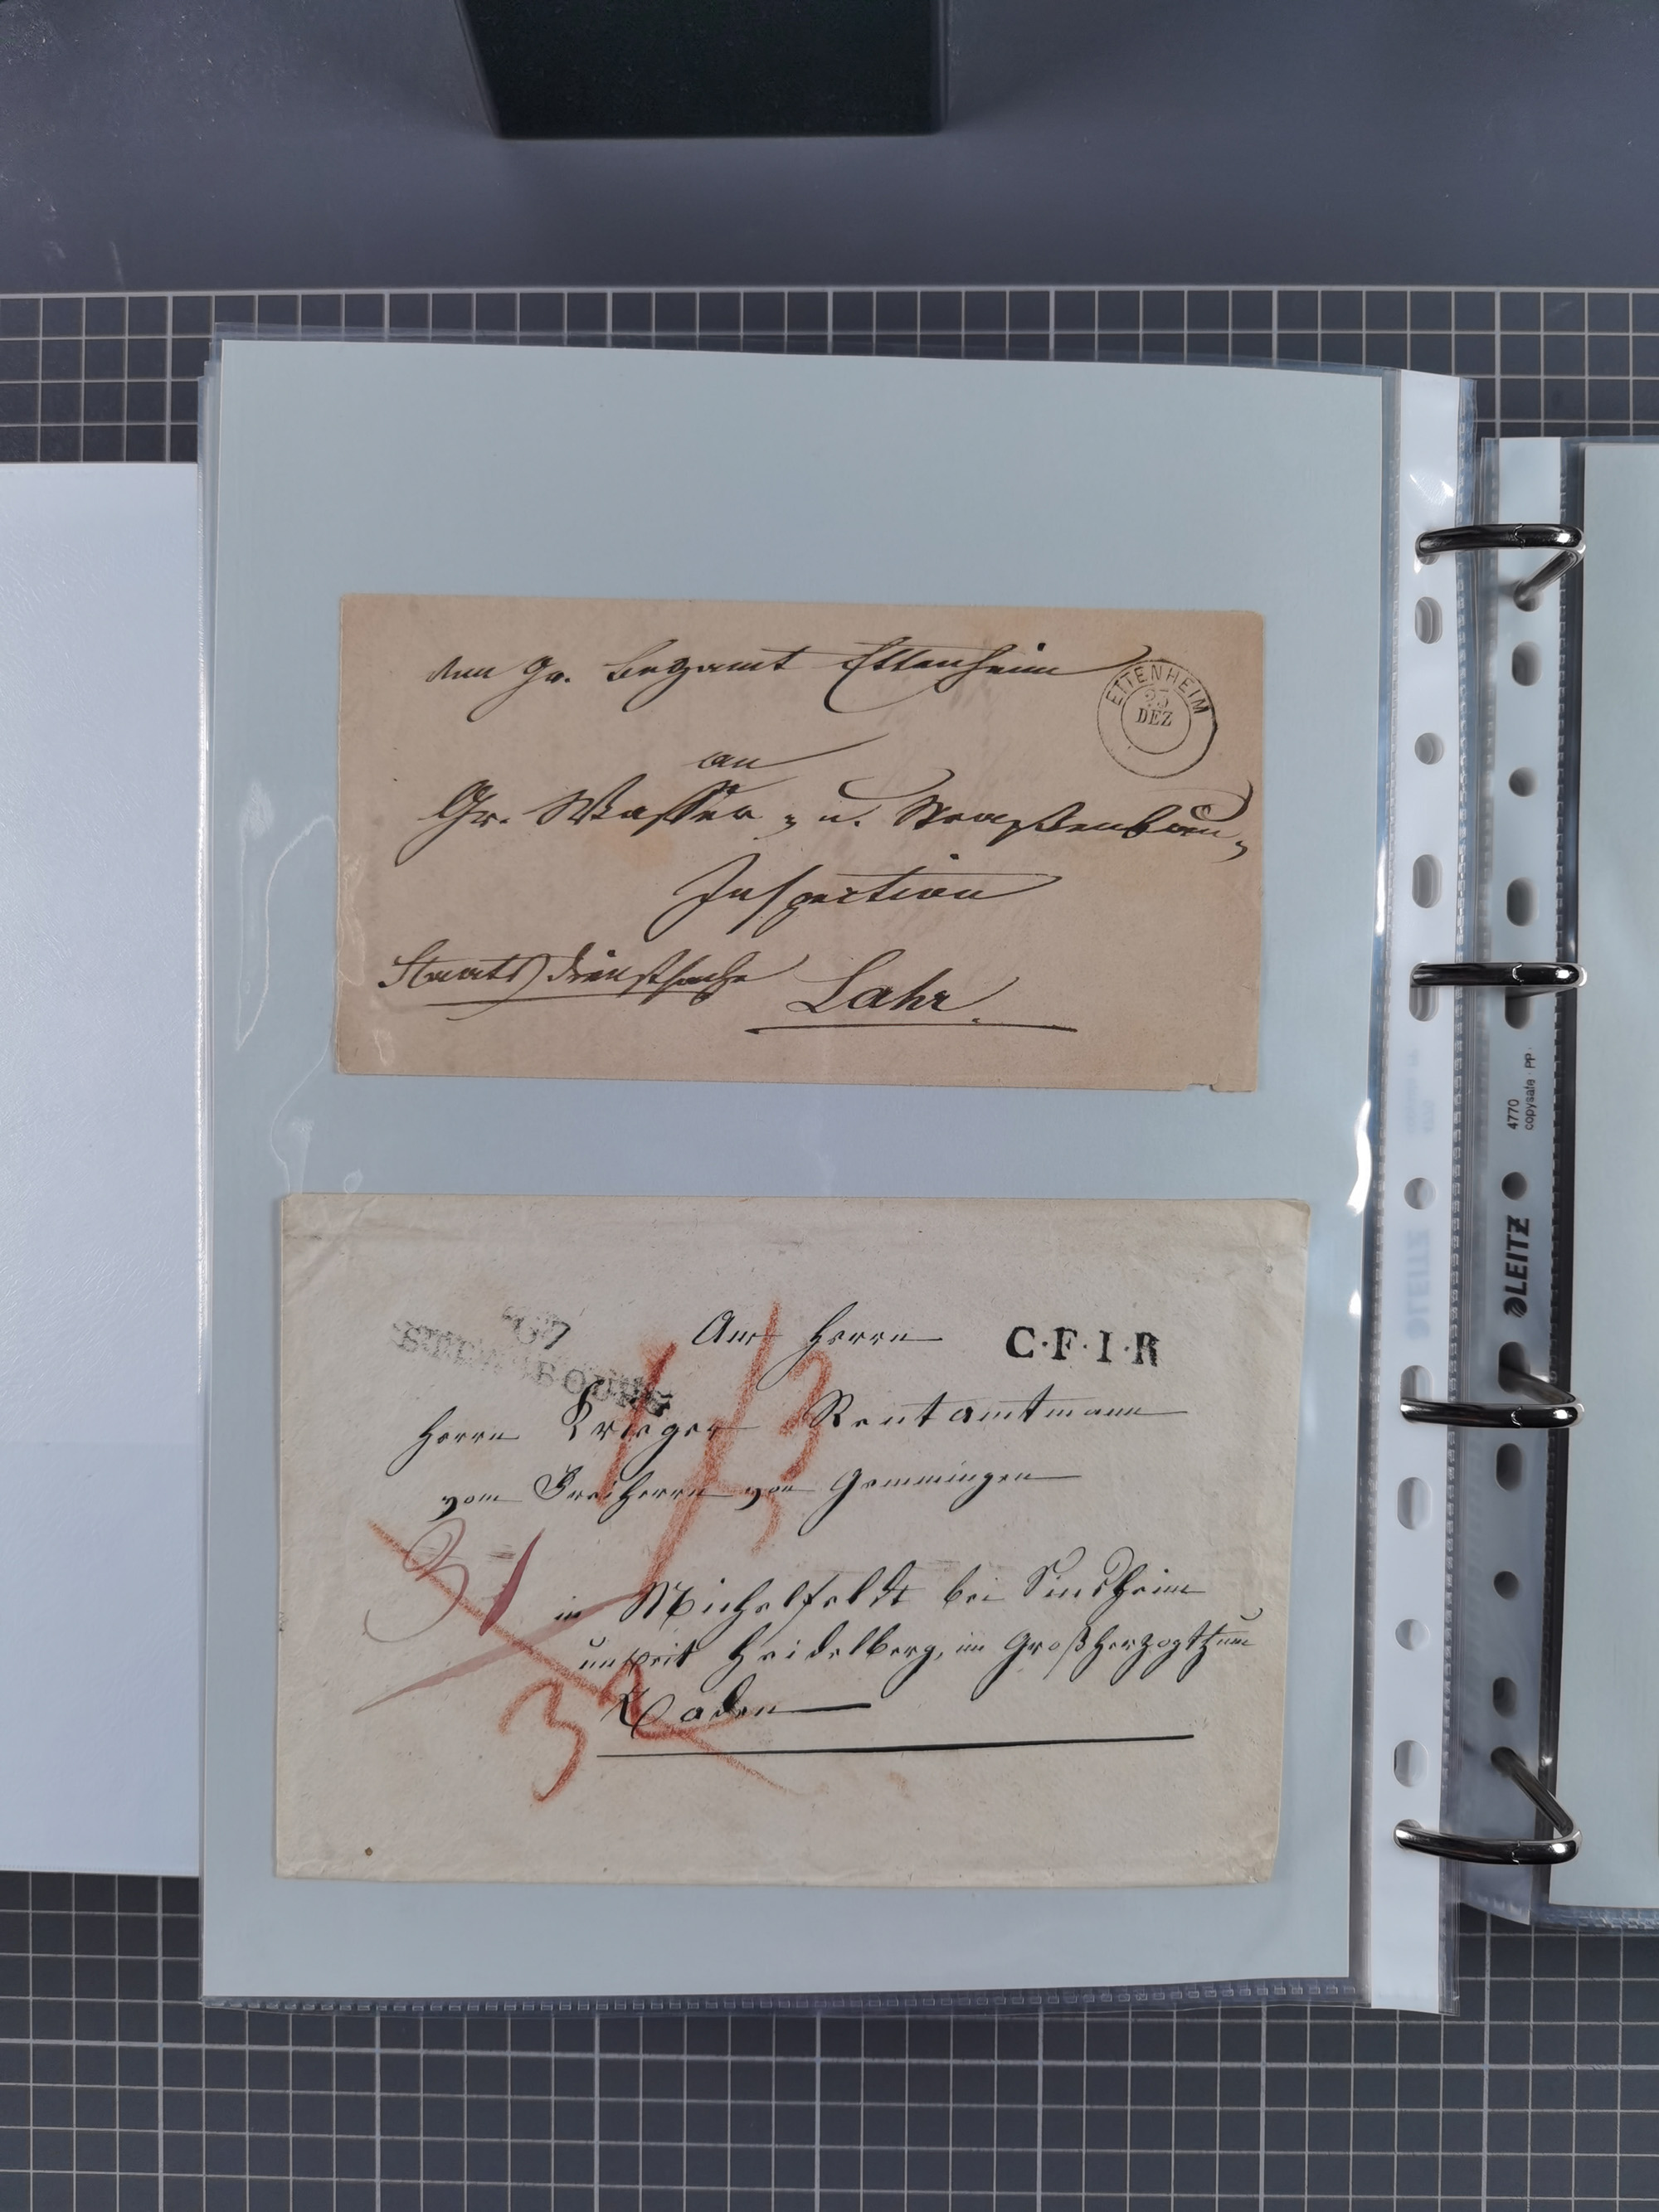 Vom Gr. Bezgamt Ettenheim
ETTENHEIM
25
DEZ
an
Gr. Wasser- u. Straßenbau-
Inspection
Staats Dienstsache
Lahr.
67
STRASBOURG
Herrn
C.F.I.R
Herrn Krieger Rentamtmann
vom Freiherrn von Gemmingen
in Michelfeldt bei Sindheim
unweit Heidelberg, im Großherzogthum
Baden
4770
copysafe · PP
LEITZ